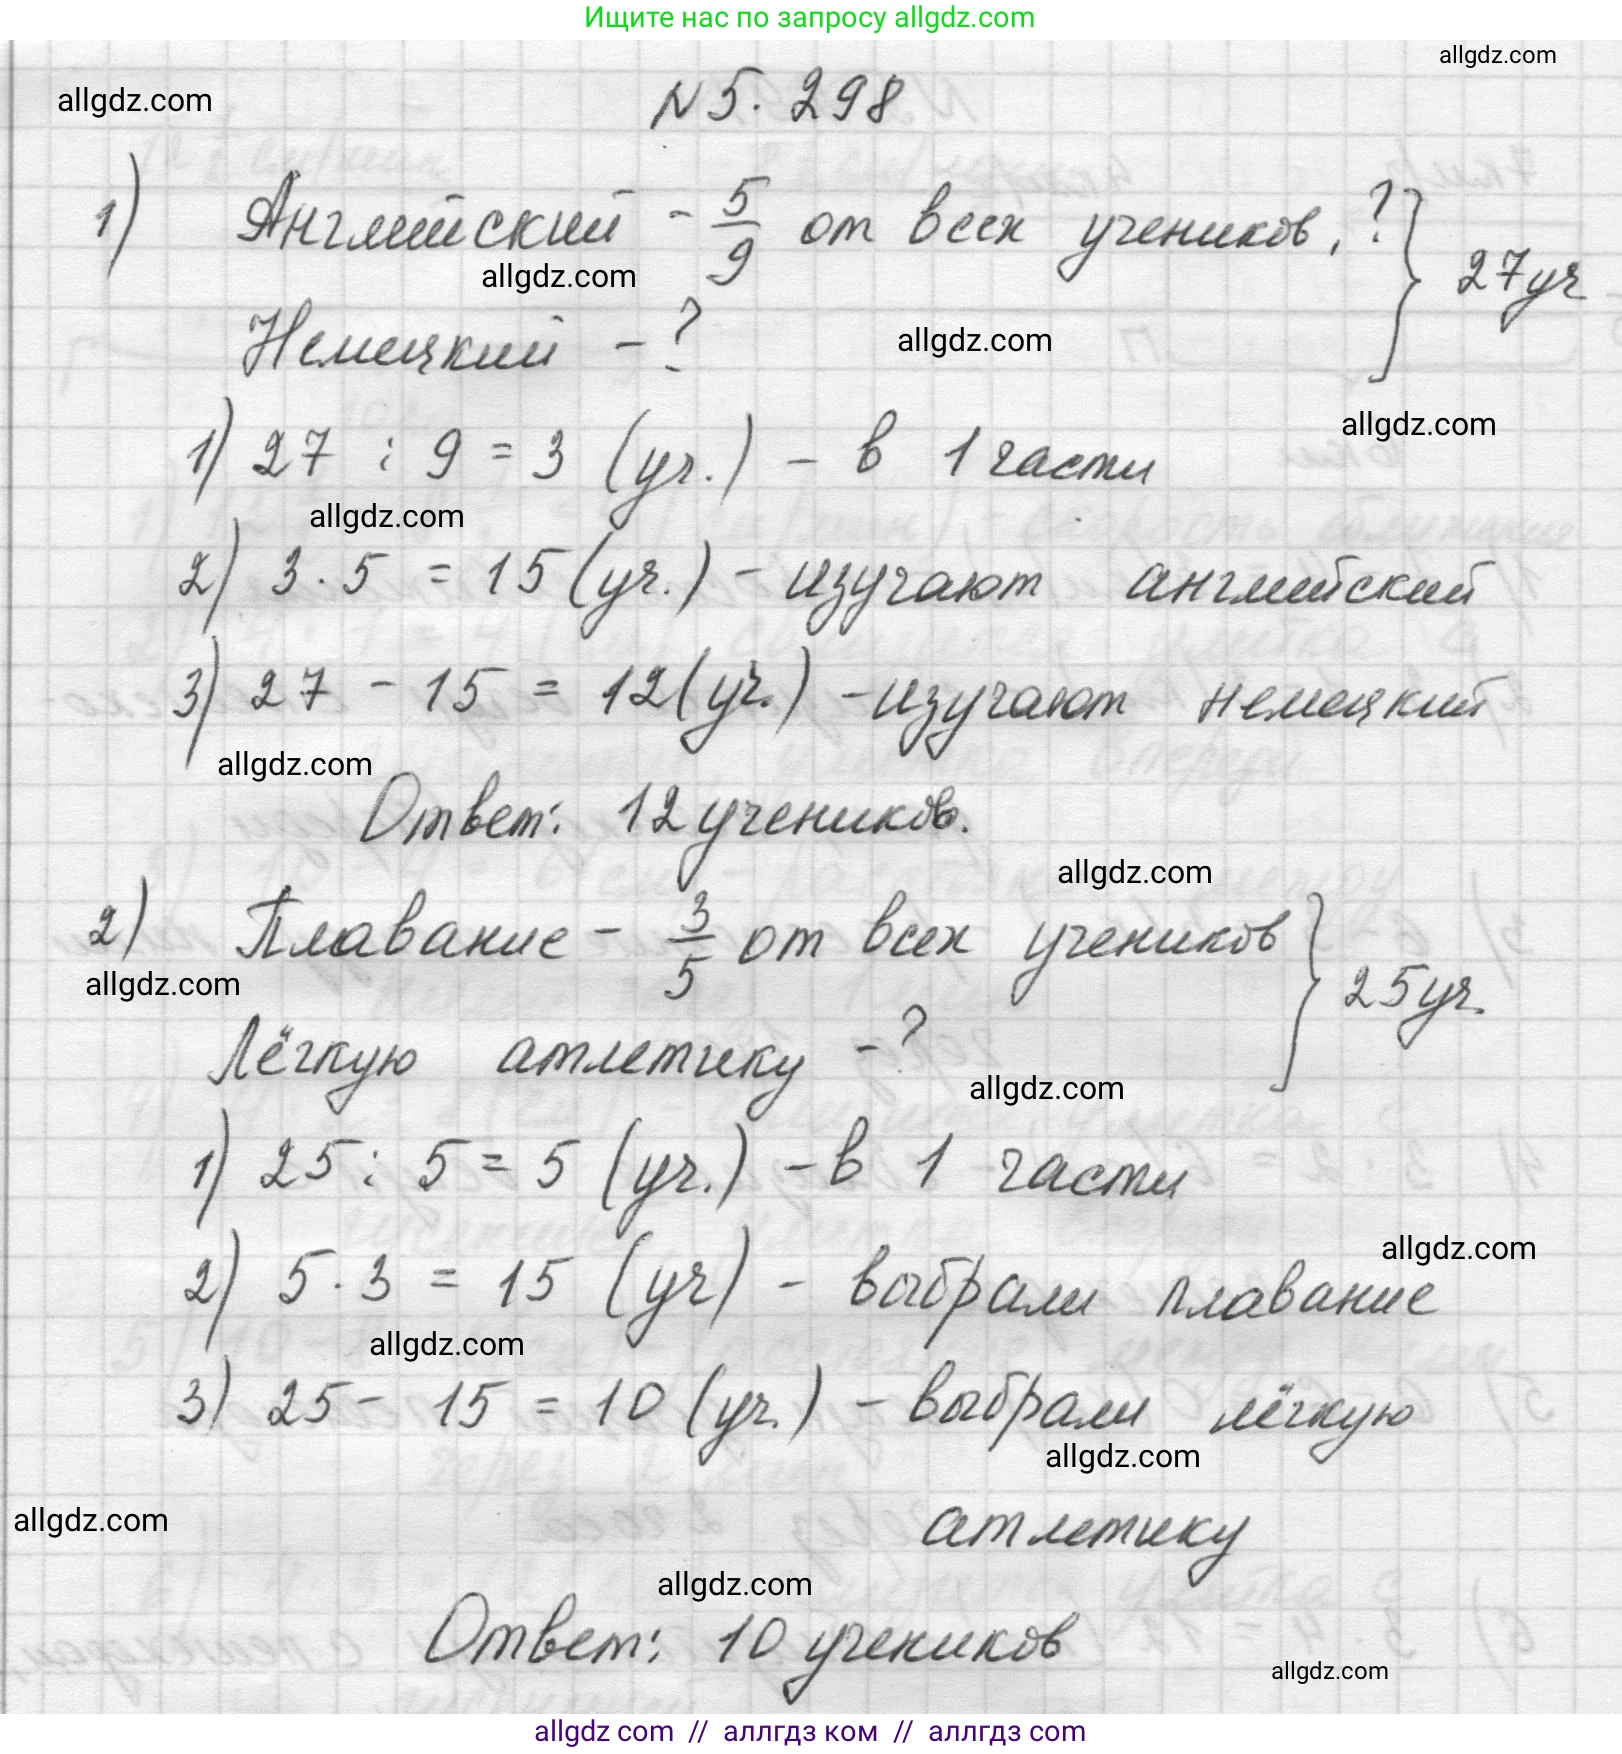 Ищите нас по запросу allgdz.com
allgdz.com
allgdz.com
N 5. 298
1) Английский - 5/9 от всех учеников, ? } 27уч
allgdz.com
Немецкий - ?
allgdz.com
allgdz.com
1) 27 : 9 = 3 (уч.) - в 1 части
allgdz.com
2) 3 . 5 = 15 (уч.) - изучают английский
3) 27 - 15 = 12 (уч.) - изучают немецкий
allgdz.com
Ответ: 12 учеников.
allgdz.com
2) Плавание - 3/5 от всех учеников } 25уч.
allgdz.com
Лёгкую атлетику - ?
allgdz.com
1) 25 : 5 = 5 (уч.) - в 1 части
2) 5 . 3 = 15 (уч) - выбрали плавание
allgdz.com
allgdz.com
3) 25 - 15 = 10 (уч.) - выбрали лёгкую
allgdz.com
allgdz.com
атлетику
allgdz.com
Ответ: 10 учеников
allgdz.com
allgdz.com // аллгдз ком // аллгдз com